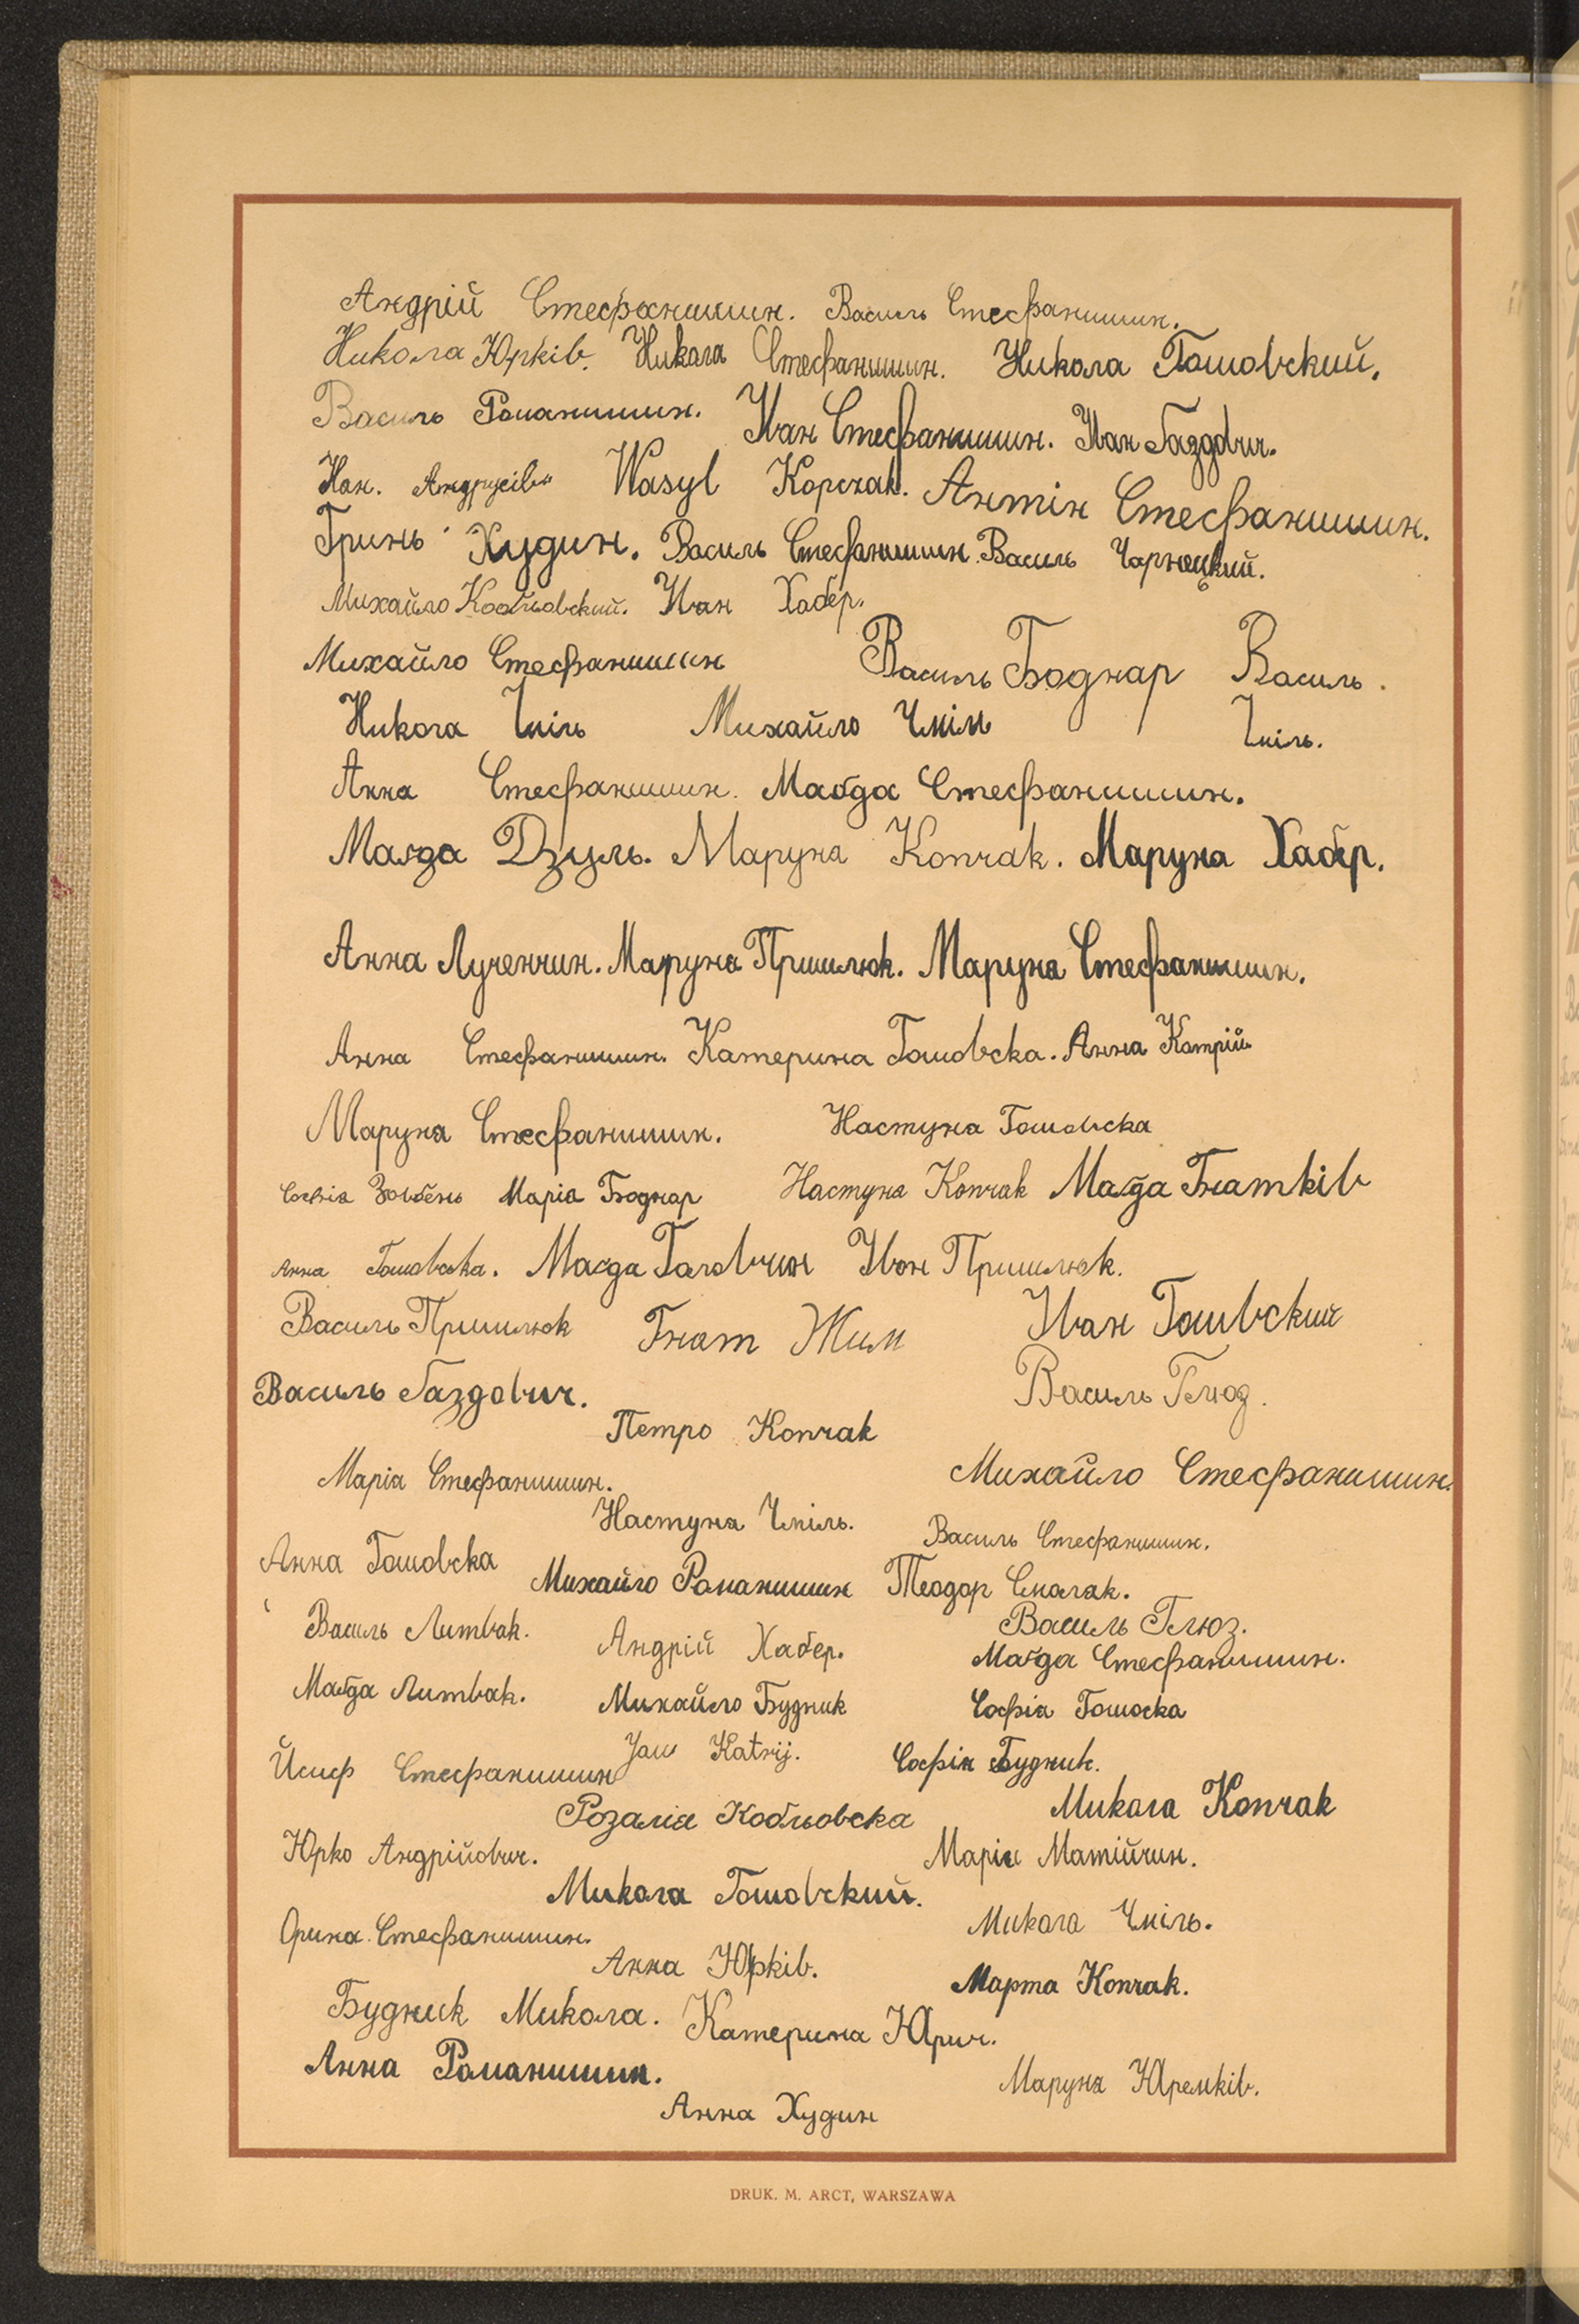 Андрій Стефанишин. Василь Стефанишин.
Никола Юрків. Никола Стефанишин. Никола Гошовский.
Василь Романишин. Иван Стефанишин. Иван Ґаздович.
Иан. Андрусів Wasyl Корсzак. Антін Стефанишин.
Гринь Худин. Василь Стефанишин. Василь Чарнецкий.
Михайло Кобльовский. Иван Хабер.
Михайло Стефанишин Василь Боднар Василь
Никола Чміль Михайло Чміль Чміль.
Анна Стефанишин. Маґда Стефанишин.
Маґда Дзуль. Маруна Копчак. Маруна Хабер.
Анна Лученчин. Маруна Пришлюк. Маруна Стефанишин.
Анна Стефанишин. Катерина Гошовска. Анна Катрій
Маруна Стефанишин. Настуна Гошовска
Софія Марія Боднар Настуна Копчак Маґда Гнатків
Анна Гошовска. Маґда Головчин Иван Пришлюк.
Василь Пришлюк Гнат Жим Иван Гошвский
Василь Ґаздович. Василь Глюдз.
Петро Копчак
Марія Стефанишин. Михайло Стефанишин.
Настуна Чміль. Василь Стефанишин.
Анна Гошовска Михайло Романишин Теодор Смолак.
Василь Литвак. Андрій Хабер. Василь Глюз.
Маґда Стефанишин.
Маґда Литвак. Михайло Будник Софія Гошоска
Йсиф Стефанишин Jan Katrij. Софія Будник.
Розалія Кобльовска Микола Копчак
Юрко Андрійович. Марія Матійчин.
Микола Гошовский.
Орина Стефанишин. Микола Чміль.
Анна Юрків. Марта Копчак.
Будник Микола. Катерина Юрич.
Анна Романишин. Маруна Яремків.
Анна Худин
DRUK. M. ARCT, WARSZAWA